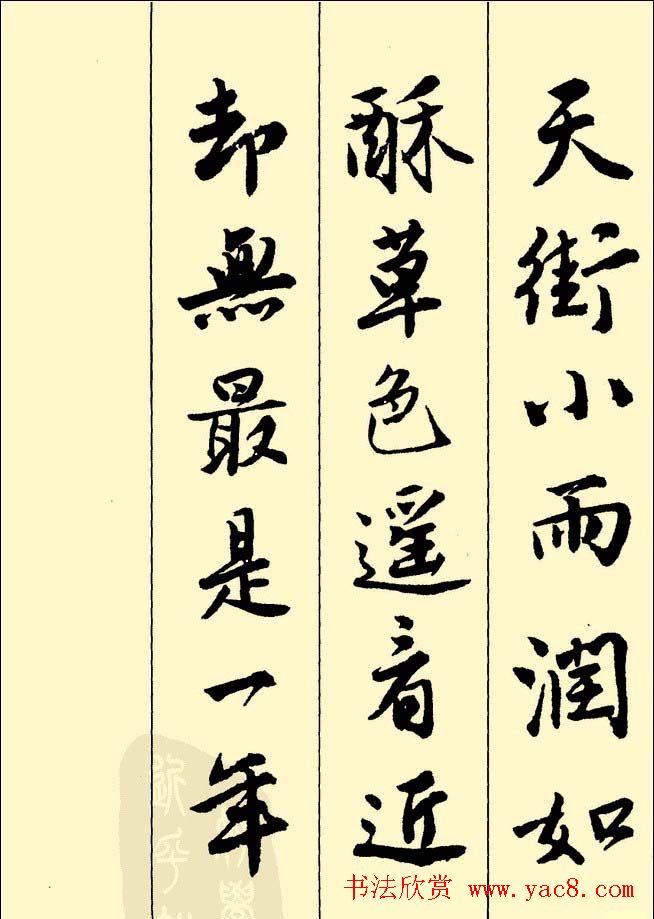 天街小雨潤如
酥草色遥看近
却無最是一年
书法欣赏 www.yac8.com